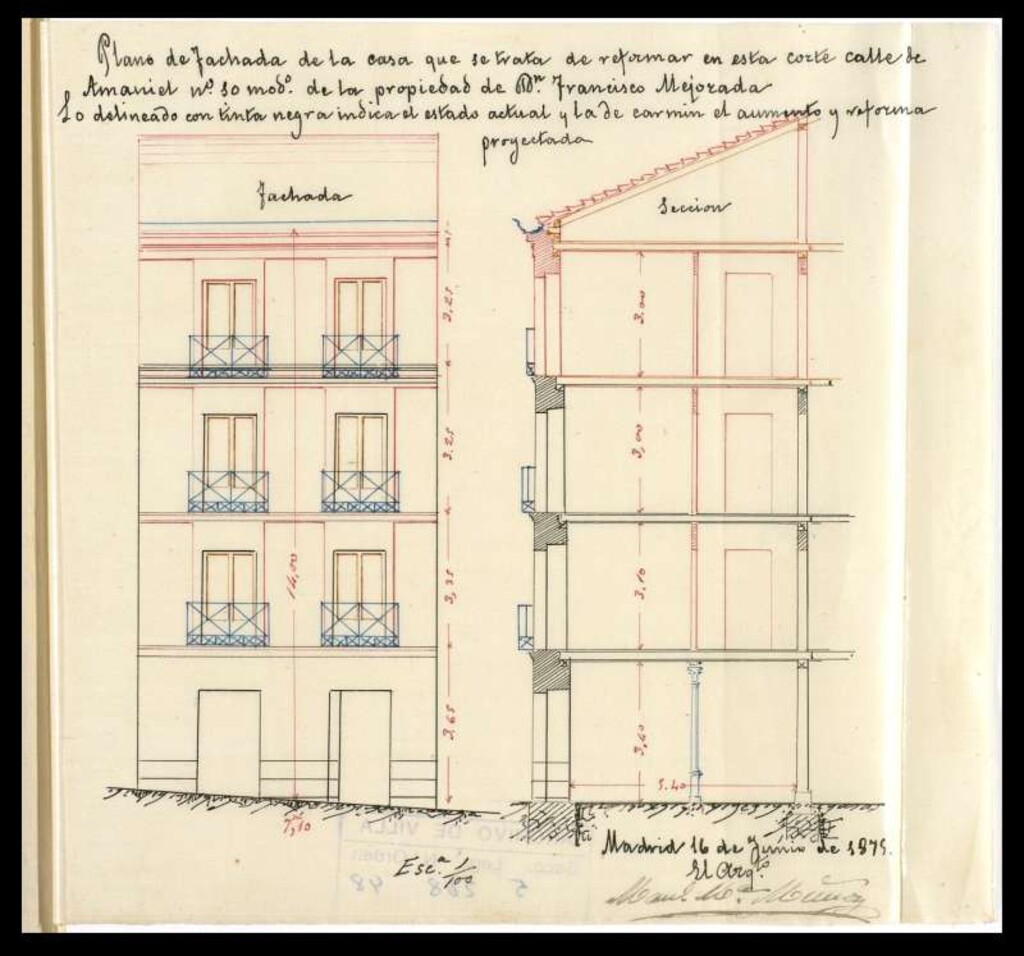 Plano de fachada de la casa que se trata de reformar en esta corte calle de
Amaniel nº 10 modº. de la propiedad de Dn. Francisco Mejorada
Lo delineado con tinta negra indica el estado actual y la de carmin el aumento y reforma
proyectada
Fachada
Seccion
3,25
3,00
3.25
3,00
14,00
3,35
3,10
3,65
3,40
5.40
7,10
Madrid 16 de Junio de 1875.
El Arqto.
Escª 1/100
Muñoz